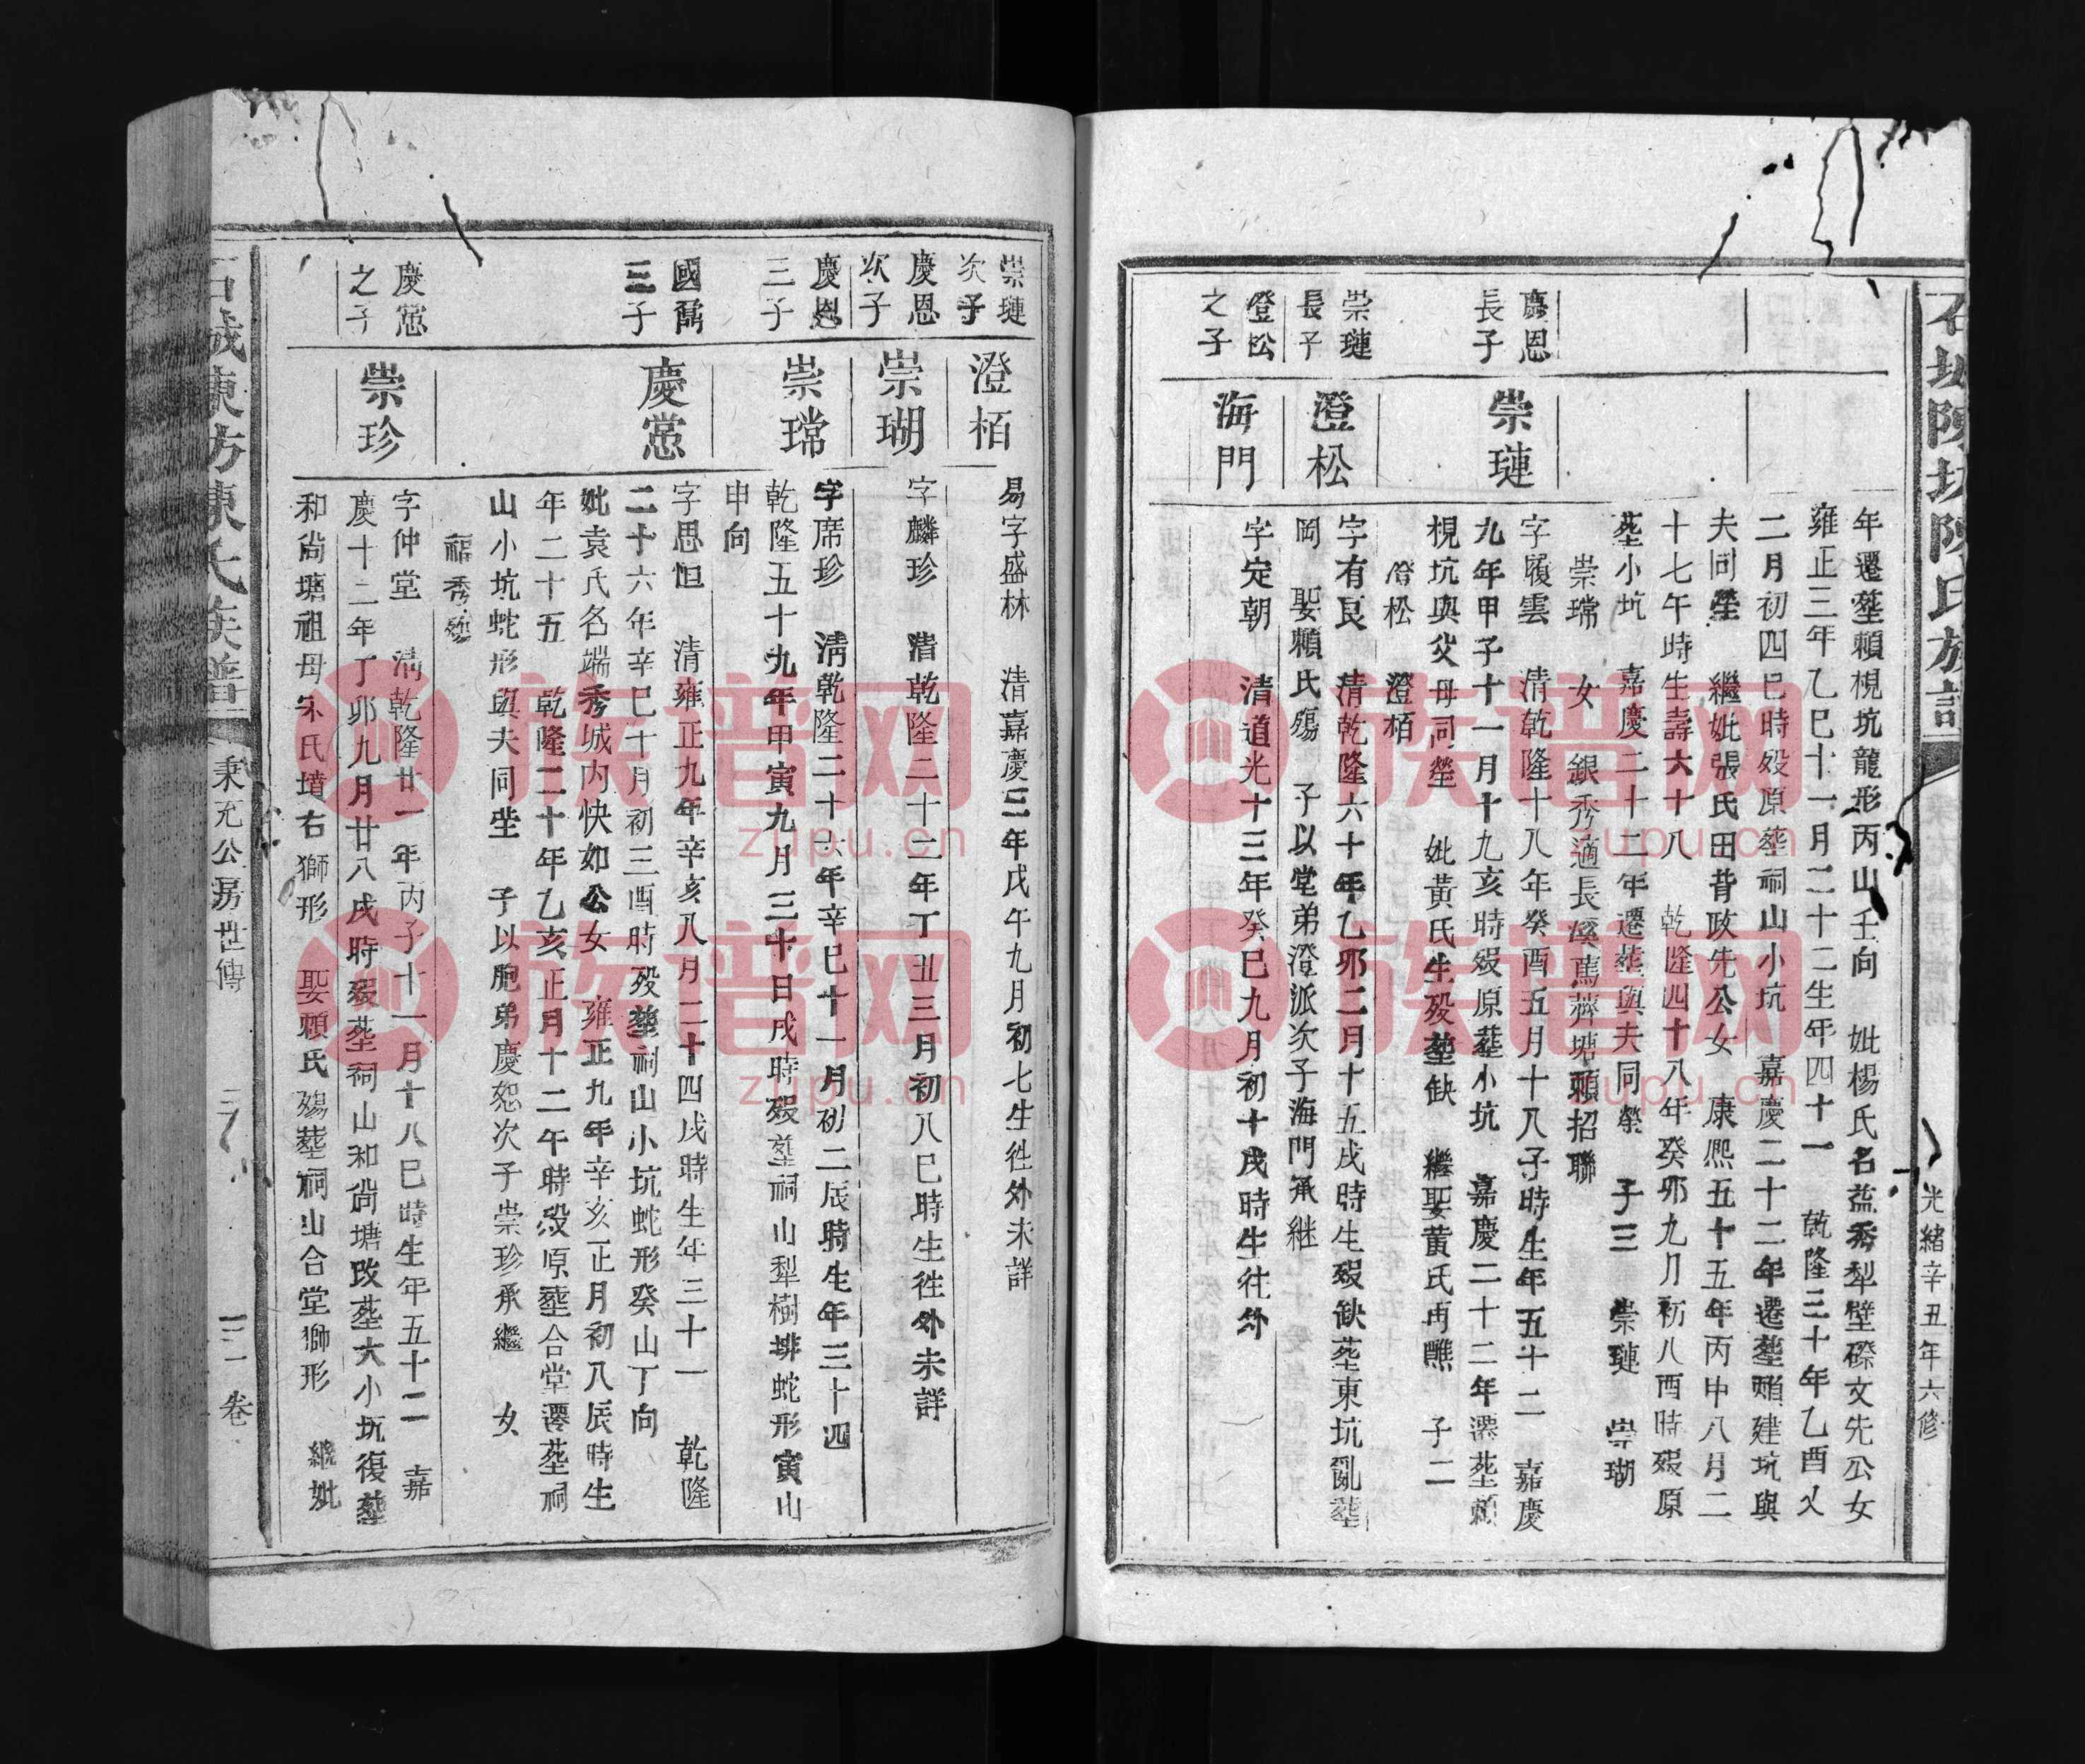 光緒辛丑年六修
年遷塟賴梘坑龍形丙山壬向 妣楊氏名益秀犁壁磜文先公女
雍正三年乙巳十一月二十二生年四十一 乾隆三十年乙酉乂
二月初四巳時歿原塟祠山小坑 嘉慶二十二年遷塟賴建坑與
夫同塋 繼妣張氏田背政先公女 康熙五十五年丙申八月二
十七午時生壽六十八 乾隆四十八年癸邜九月初八酉時歿原
塟小坑 嘉慶二十二年遷塟與夫同塋 子三 崇璉 崇瑚
崇瑺 女 銀秀適長溪薦薺塘賴招聯
慶恩
長子
崇璉
字履雲 清乾隆十八年癸酉五月十八子時生年五十二 嘉慶
九年甲子十一月十九亥時歿原塟小坑 嘉慶二十二年遷塟賴
梘坑與父母同塋 妣黃氏生歿塟缺 繼娶黃氏再醮 子二
澄松 澄栢
崇璉
長子
澄松
字有艮 清乾隆六十年乙邜二月十五戌時生歿缺塟東坑亂塟
岡 娶賴氏殤 子以堂弟澄派次子海門承継
澄松
之子
海門
字定朝 清道光十三年癸巳九月初十戌時生徃外
崇璉
次子
澄栢
易字盛林 清嘉慶三年戊午九月初七生徃外未詳
慶恩
次子
崇瑚
字麟珍 清乾隆二十二年丁丑三月初八巳時生徃外未詳
慶恩
三子
崇瑺
字席珍 清乾隆二十六年辛巳十一月初二辰時生年三十四
乾隆五十九年甲寅九月三十日戌時歿塟祠山犁樹排蛇形寅山
申向
國鼐
三子
慶常
字思恒 清雍正九年辛亥八月二十四戌時生年三十一 乾隆
二十六年辛巳十月初三酉時歿塟祠山小坑蛇形癸山丁向
妣袁氏名端秀城內快如公女 雍正九年辛亥正月初八辰時生
年二十五 乾隆二十年乙亥正月十二午時歿原塟合堂遷塟祠
山小坑蛇形與夫同坐 子以胞弟慶恕次子崇珍承繼 女
福秀殤
慶常
之子
崇珍
字仲堂 清乾隆廿一年丙子十一月十八巳時生年五十二 嘉
慶十二年丁卯九月廿八戌時歿塟祠山和尚塘改塟大小坑復塟
和尚塘祖母宋氏墳右獅形 娶賴氏殤塟祠山合堂獅形 繼妣
石城東坊陳氏族譜 秉充公房世傳 卷